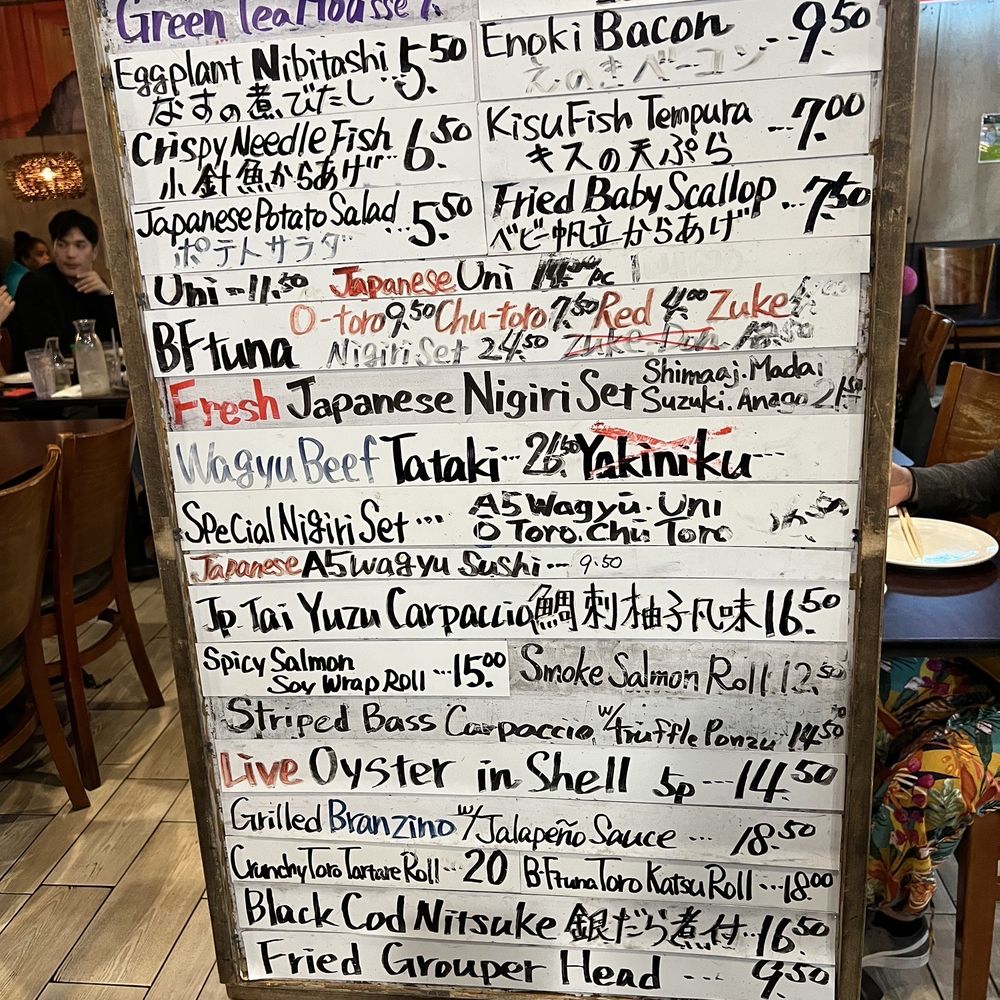 Green Tea Mousse 7.
Enoki Bacon ... 9.50
えのきベーコン
Eggplant Nibitashi 5.50
なすの煮びたし
Kisu Fish Tempura ... 7.00
キスの天ぷら
Crispy Needle Fish 6.50
小針魚からあげ
Fried Baby Scallop ... 7.50
ベビー帆立からあげ
Japanese Potato Salad 5.50
ポテトサラダ
Uni - 11.50 Japanese Uni PC
O-toro 9.50 Chu-toro 7.50 Red 4.00 Zuke
BF tuna Nigiri Set 24.50 Zuke Don
Fresh Japanese Nigiri Set Shimaaj. Madai
Suzuki. Anago
Wagyu Beef Tataki ... Yakiniku ...
Special Nigiri Set ... A5 Wagyu. Uni
O Toro. Chu Toro
Japanese A5 Wagyu Sushi ... 9.50
Jp Tai Yuzu Carpaccio 鯛刺柚子風味 16.50
Spicy Salmon
Soy Wrap Roll ... 15.00
Smoke Salmon Roll 12.50
Striped Bass Carpaccio w/ truffle Ponzu 14.50
Live Oyster in Shell 5p --- 14.50
Grilled Branzino w/ Jalapeño Sauce ... 18.50
Crunchy Toro Tartare Roll ... 20
B.F tuna Toro Katsu Roll ... 18.00
Black Cod Nitsuke 銀だら煮付 ... 16.50
Fried Grouper Head ---- 9.50